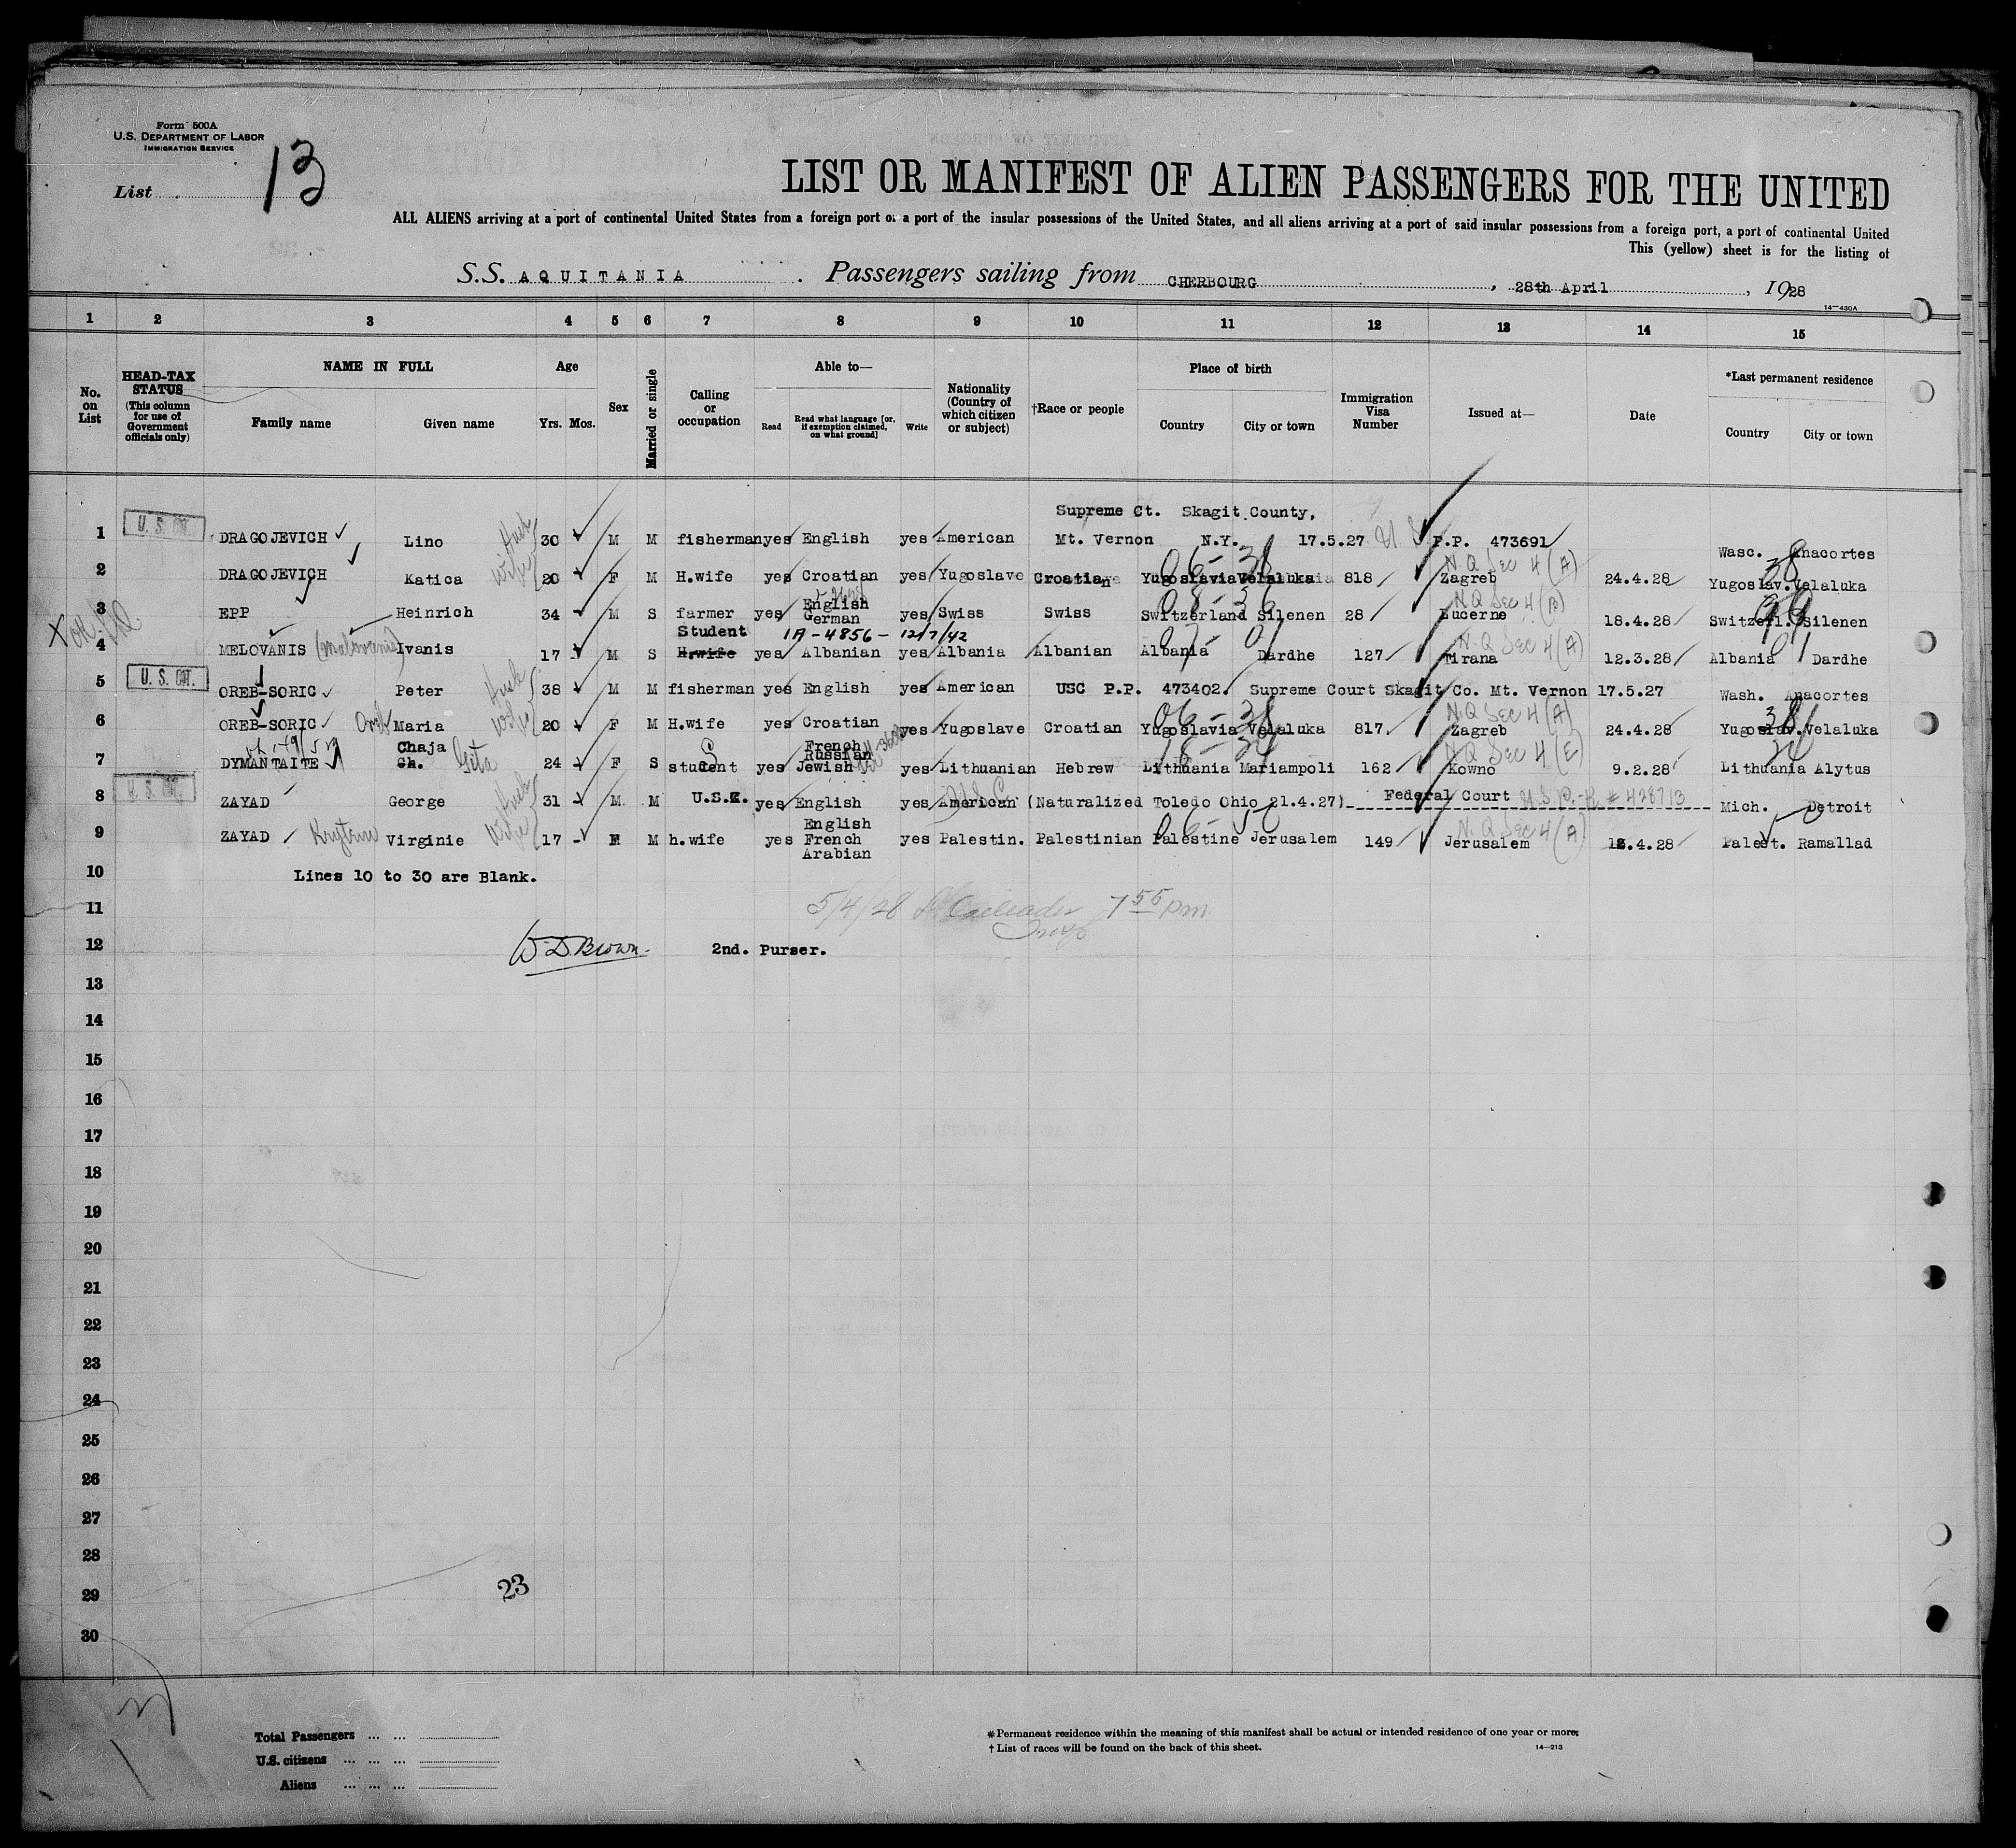 Form 500A
U.S. DEPARTMENT OF LABOR
IMMIGRATION SERVICE
List 13
LIST OR MANIFEST OF ALIEN PASSENGERS FOR THE UNITED
ALL ALIENS arriving at a port of continental United States from a foreign port or a port of the insular possessions of the United States, and all aliens arriving at a port of said insular possessions from a foreign port, a port of continental United
This (yellow) sheet is for the listing of
S.S. AQUITANIA Passengers sailing from CHERBOURG, 28th April, 1928
14—430A
1 2 3 4 5 6 7 8 9 10 11 12 13 14 15
No. on List
HEAD-TAX STATUS (This column for use of Government officials only)
NAME IN FULL
Family name Given name
Age
Yrs. Mos.
Sex
Married or single
Calling or occupation
Able to—
Read Read what language [or, if exemption claimed, on what ground] Write
Nationality (Country of which citizen or subject)
†Race or people
Place of birth
Country City or town
Immigration Visa Number
Issued at—
Date
*Last permanent residence
Country City or town
Supreme Ct. Skagit County,
1 U. S. CIT. DRAGOJEVICH Lino Husb 30 M M fisherman yes English yes American Mt. Vernon N.Y. 17.5.27 U S P.P. 473691 Wasc. Anacortes
2 DRAGOJEVICH Katica Wife 20 F M H.wife yes Croatian yes Yugoslave Croatian Yugoslavia Velaluka 818 Zagreb N.Q Sec 4 (A) 24.4.28 Yugoslav. Velaluka
06-38 38
3 EPP Heinrich 34 M S farmer yes English German yes Swiss Swiss Switzerland Silenen 28 Lucerne NQ Sec 4 18.4.28 Switzerl. Silenen
08-36
Student 1A-4856- 12/7/42
4 MELOVANIS Ivanis 17 M S H.wife yes Albanian yes Albania Albanian Albania Dardhe 127 Tirana N.Q Sec 4 (A) 12.3.28 Albania Dardhe
07-01 01
5 U. S. CIT. OREB-SORIC Peter Husb 38 M M fisherman yes English yes American USC P.P. 473402. Supreme Court Skagit Co. Mt. Vernon 17.5.27 Wash. Anacortes
6 OREB-SORIC Oreb Maria Wife 20 F M H.wife yes Croatian yes Yugoslave Croatian Yugoslavia Velaluka 817 Zagreb N.Q Sec 4 (A) 24.4.28 Yugoslav. Velaluka
06-38 38
7 DYMANTAITE Chaja Ch. Gita 24 F S student yes French Russian Jewish yes Lithuanian Hebrew Lithuania Mariampoli 162 Kowno N Q Sec 4 (E) 9.2.28 Lithuania Alytus
8 U. S. CIT. ZAYAD George Husb 31 M M U.S. yes English yes American (Naturalized Toledo Ohio 21.4.27) Federal Court Mich. Detroit
9 ZAYAD Virginie Wife 17 F M h.wife yes English French Arabian yes Palestin. Palestinian Palestine Jerusalem 149 Jerusalem N.Q Sec 4 (A) .4.28 Palest. Ramallad
10 Lines 10 to 30 are Blank.
11 5/4/28 7 55 pm
12 W.D. Brown 2nd. Purser.
13
14
15
16
17
18
19
20
21
22
23
24
25
26
27
28
29 23
30
Total Passengers
U.S. citizens
Aliens
*Permanent residence within the meaning of this manifest shall be actual or intended residence of one year or more.
† List of races will be found on the back of this sheet.
14—213